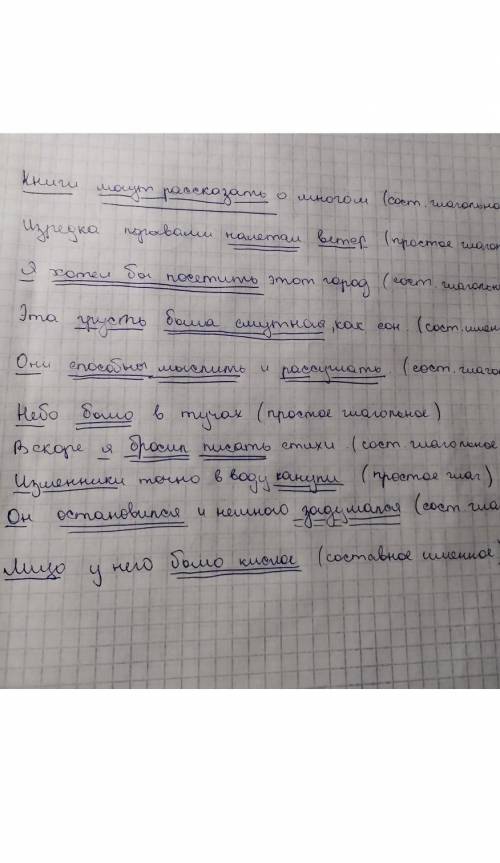 Книги могут рассказать о многом (сост. глагольно
Изредка порывами налетал ветер (простое глаго
Я хотел бы посетить этот город (сост. глагольн
Эта грусть была смутная, как сон. (сост. имен
Они способны мыслить и рассуждать (сост. глаго
Небо было в тучах (простое глагольное)
Вскоре я бросил писать стихи (сост. глагольное
Изменники точно в воду канули (простое глаг)
Он остановился и немного задумался (сост. гла
Лицо у него было кислое (составное именное)